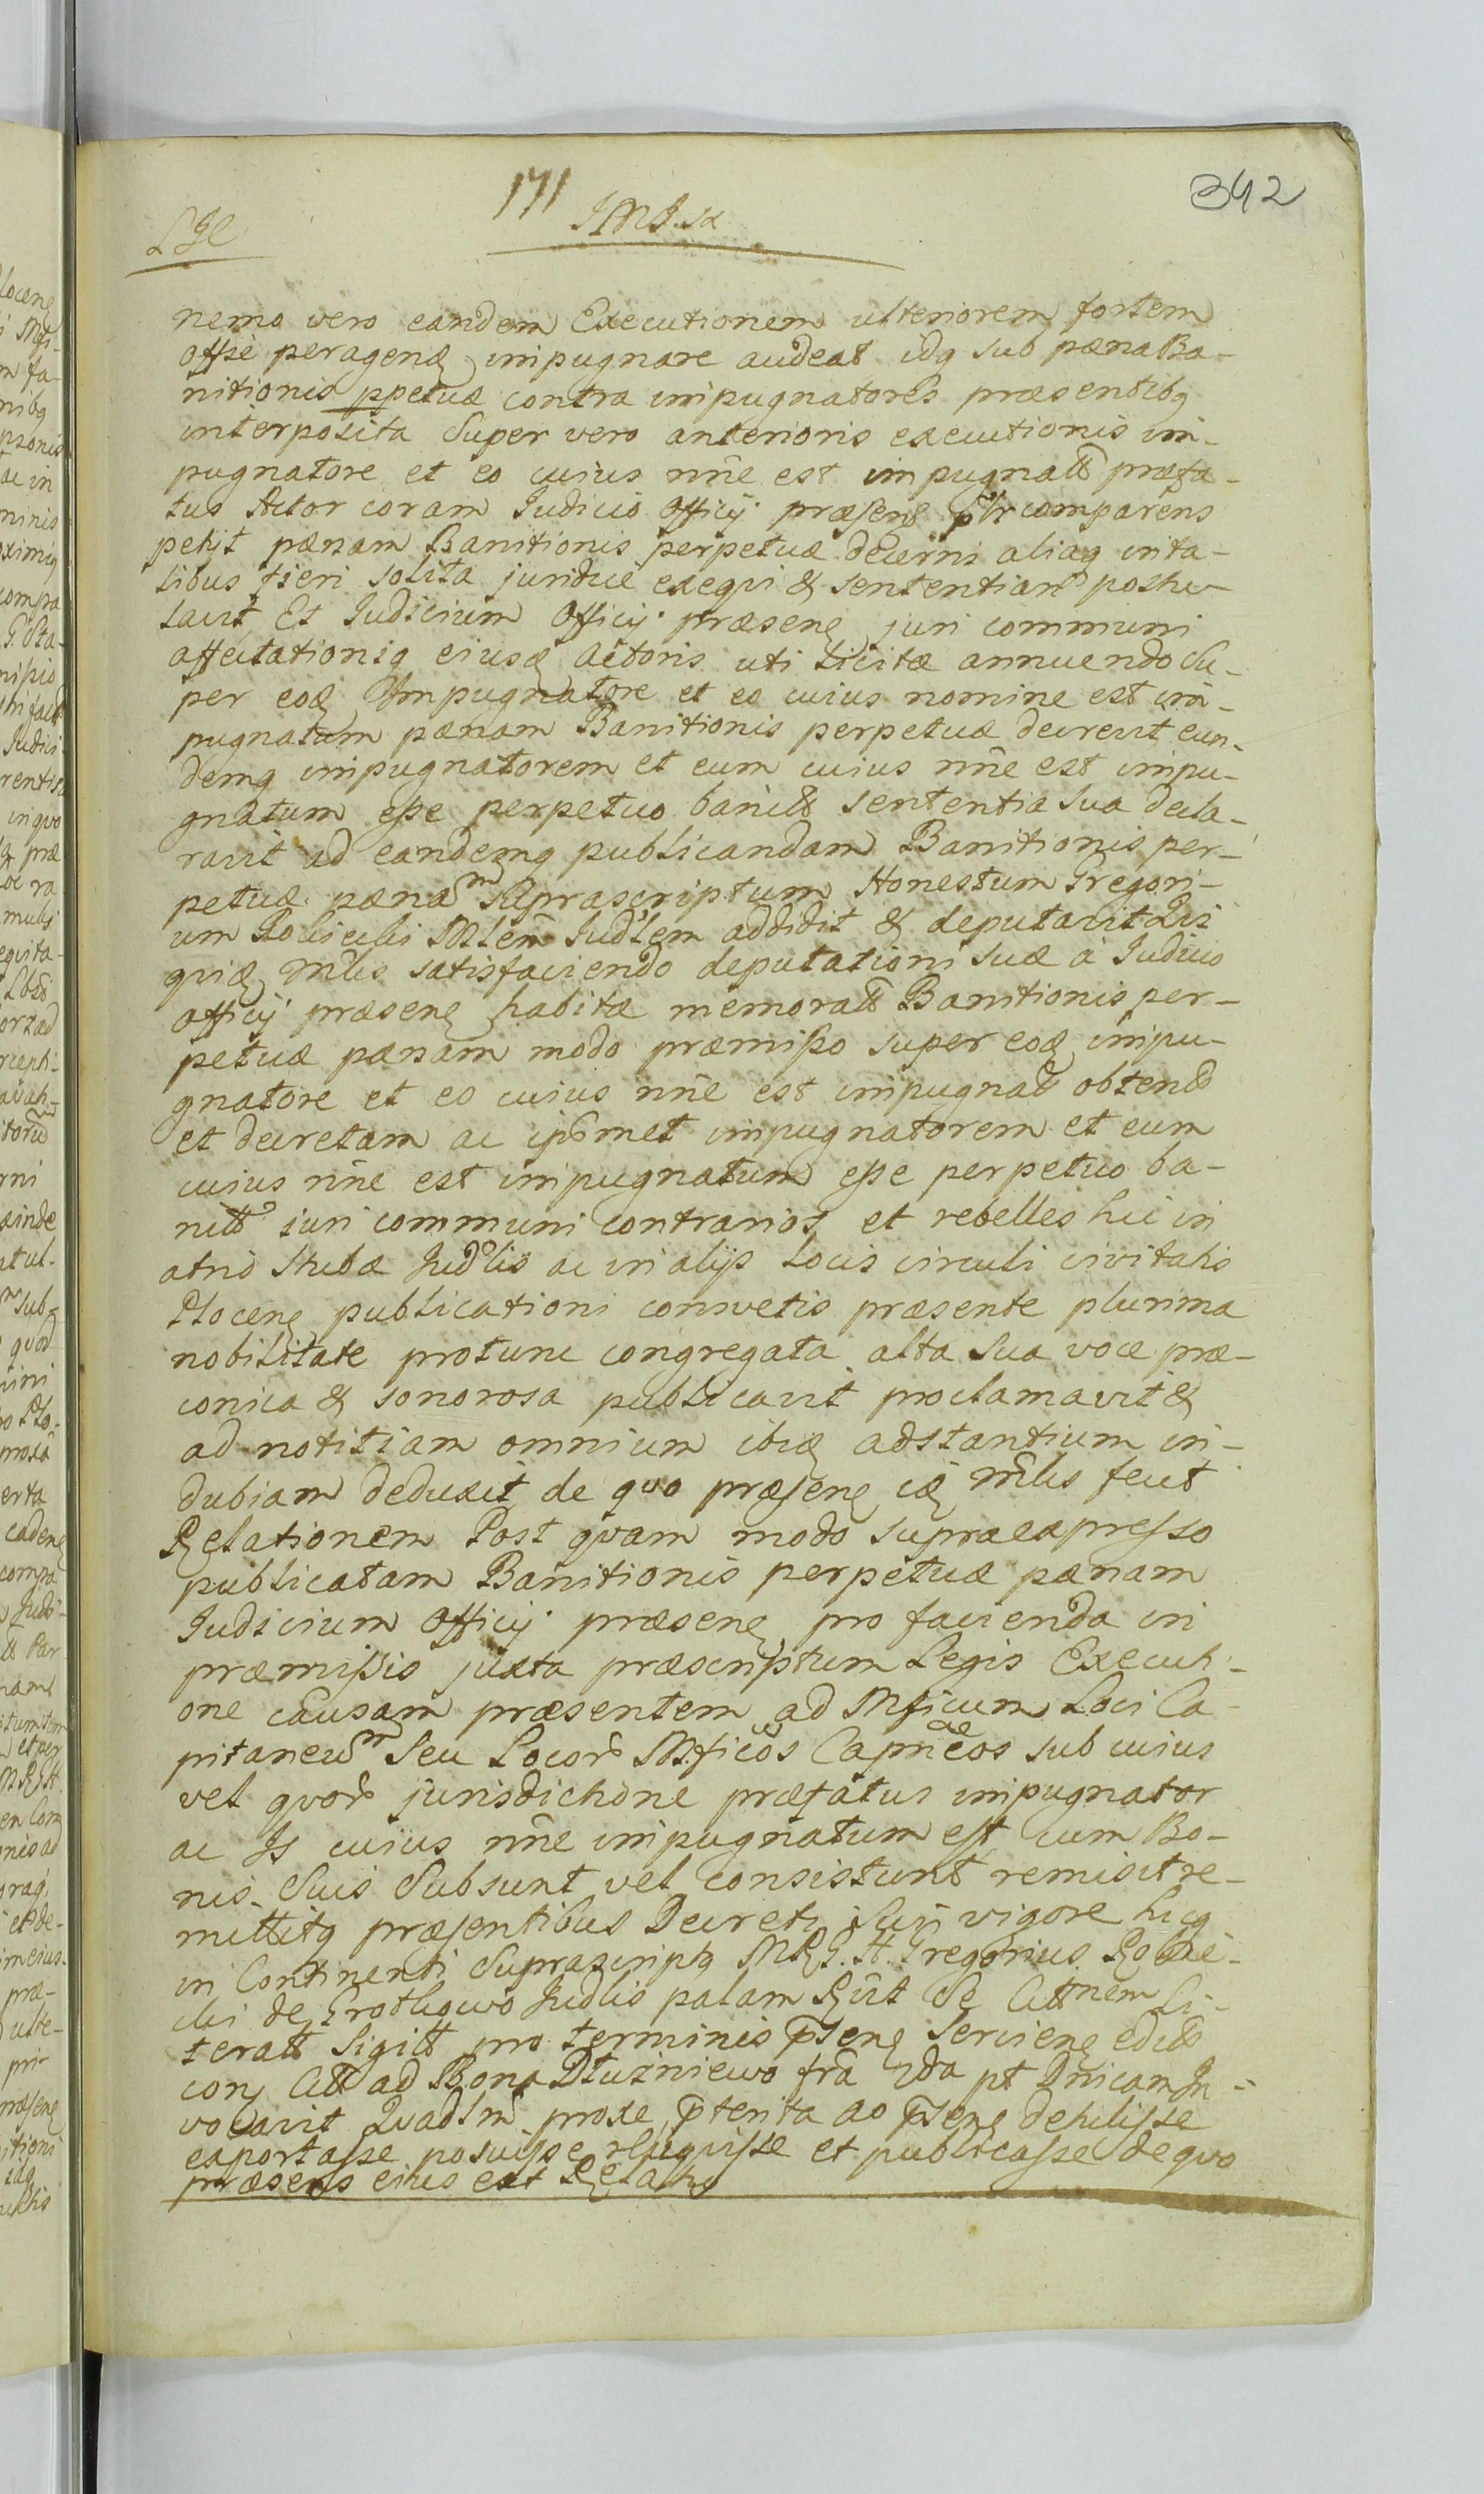 171
342
nemo vero eandem Executionem ulteriorem fortem
offse peragenę impugnare audeat idq sub pæna Ba-
nitionis ppetuæ contra impugnatores præsentibq
interposita Super vero anterioris executionis im-
pugnatore et eo cuius nne est impugnatt præfa-
tus Actor coram Judicio Officij præsenę plr comparens
petijt pænam Banitionis perpetuæ decerni aliaq in ta-
libus fieri solita juridice exeqvi & sententiam postu-
lavit Et Judicium Officij præsenę juri communi
affectationiq eiusę Actoris uti licitæ annuendo Su-
per eoę Impugnatore et eo cuius nomine est im-
pugnatum pænam Banitionis perpetuæ decrevit eun-
demq impugnatorem et eum cuius nne est impu-
gnatum esse perpetuo banitt sententia sua decla-
ravit ad eandemq publicandam Banitionis per-
petuæ pænam supra scriptum Honestum Gregori-
um Mlem Judlem addidit & deputavit Qvi
qvię Mlis satisfaciendo deputationi suæ à Judicio
officij præsenę habitæ memoratt Banitionis per-
petuæ pænam modo præmisso super eoę impu-
gnatore et eo cuius nne est impugnatt obtentt
et decretam ac ipsmet impugnatorem et eum
cuius nne est impugnatum esse perpetuo ba-
nitt juri communi contrarios et rebelles hic in
atrio Stubæ Judlis ac in alijs Locis circuli civitatis
Plocenę publicationi consvetis præsente plurima
nobilitate protunc congregata alta Sua voce præ-
conica & sonorosa publicavit proclamavit &
ad notitiam omnium ibię adstantium in-
dubiam deduxit de qvo præsenę ię Mlis fecit
Relationem Post qvam modo supraexpresso
publicatam Banitionis perpetuæ pænam
Judicium Officij præsenę pro facienda in
præmissis juxta præscriptum Legis Executi-
one causam præsentem ad Mficum Loci Ca-
pitaneum Seu Locor Mficos Capneos sub cuius
vel qvor jurisdictione præfatus impugnator
ac Is cuius nne impugnatum est cum Bo-
nis Suis Subsunt vel consistunt remisit re-
mittitq præsentibus Decreti Sui vigore hicq
in Continenti Supra scriptq MRG. H. Gregorius
de Judlis palam Rvit Se Cittnem Li-
teratt Sigitt pro terminis psenę Servienę edit
conę Citt ad Bona Dłuzniewo fra 2da pt Dnicam In-
vocavit Qvadlm proxe ptenta ao psenę detulisse
exportasse posuisse rliqvisse et publicasse de qvo
præsens eius est Relatio